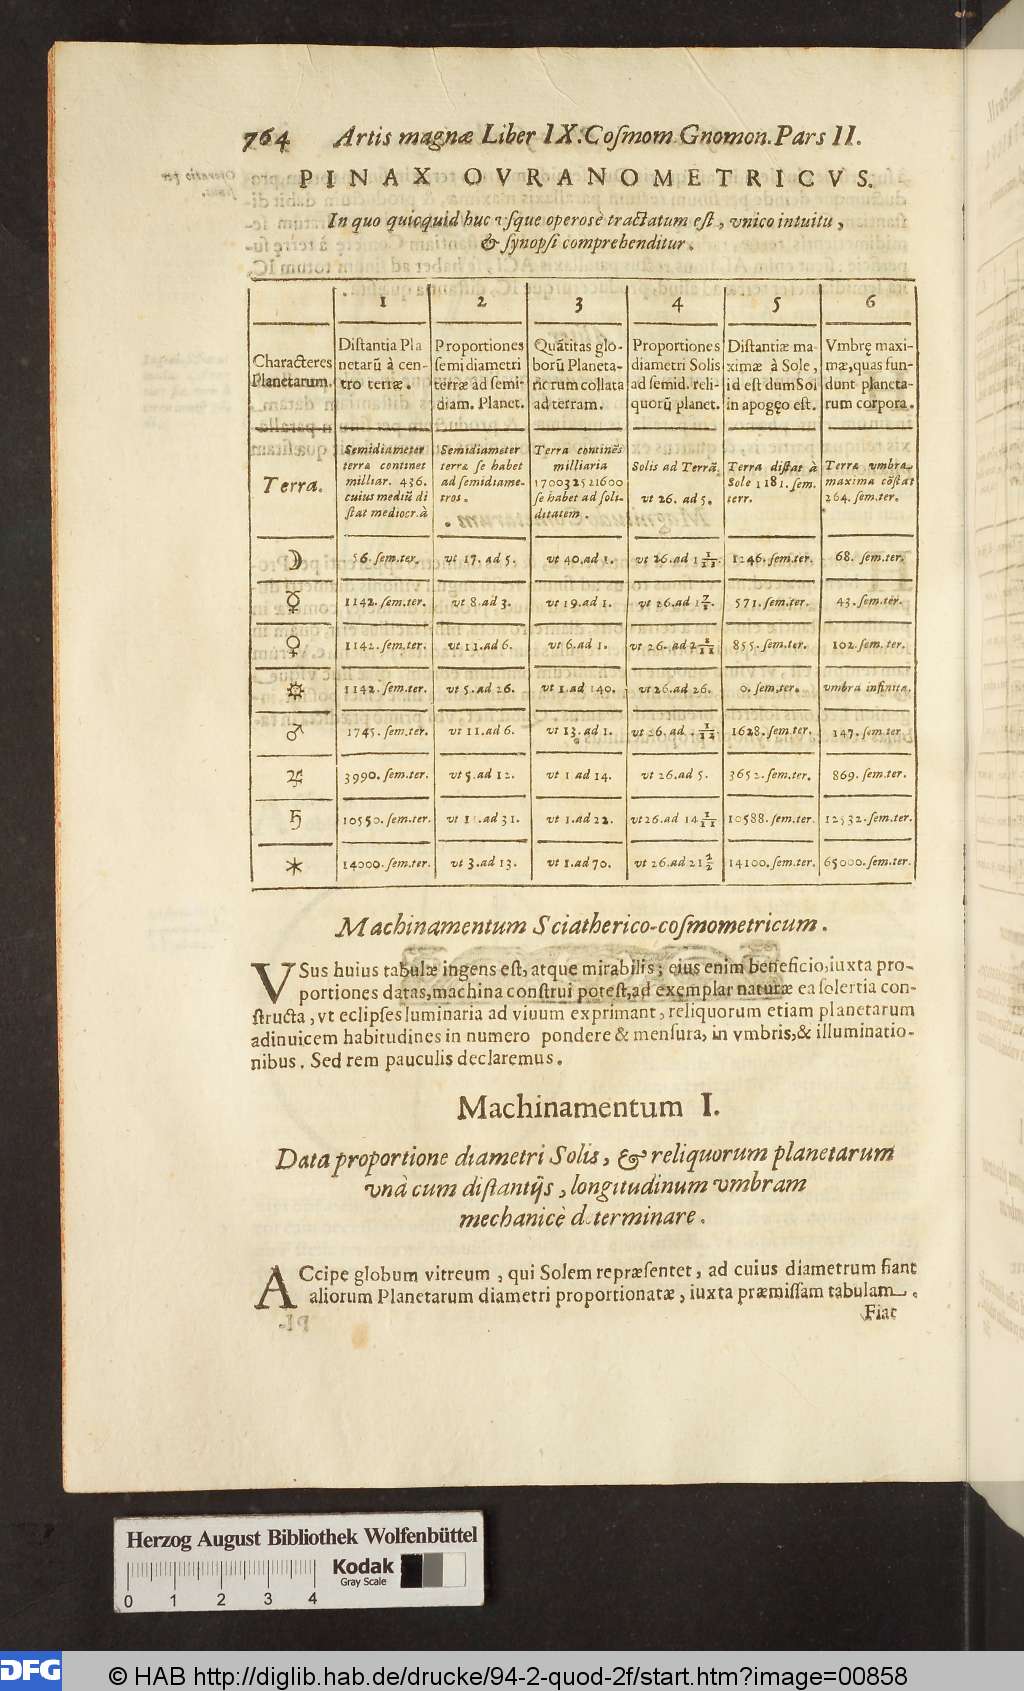 764 Artis magnæ Liber IX. Coſmom. Gnomon. Pars II.
PINAX OVRANOMETRICVS.
In quo quicquid huc vſque operosè tractatum eſt, vnico intuitu,
& ſynopſi comprehenditur.
1 2 3 4 5 6
Characteres Planetarum.
Diſtantia Pla
netarū à cen-
tro terræ.
Proportiones
ſemidiametri
terræ ad ſemi-
diam. Planet.
Quātitas glo-
borū Planeta-
ricrum collata
ad terram.
Proportiones
diametri Solis
ad ſemid. reli-
quorū planet.
Diſtantiæ ma-
ximæ à Sole,
id eſt dum Sol
in apogęo eſt.
Vmbrę maxi-
mæ, quas fun-
dunt planeta-
rum corpora.
Terra.
Semidiameter
terræ continet
milliar. 436.
cuius mediū di
ſtat mediocr. à
Semidiameter
terræ ſe habet
ad ſemidiame-
tros.
Terra continēs
milliaria
170032521600
ſe habet ad ſoli-
ditatem.
Solis ad Terrā
vt 26. ad 5.
Terra diſtat à
Sole 1181. ſem.
terr.
Terræ vmbra
maxima cōſtat
264. ſem. ter.
☽ 56. ſem. ter. vt 17. ad 5. vt 40. ad 1. vt 26. ad 1 1/11. 1246. ſem. ter. 68. ſem. ter.
☿ 1142. ſem. ter. vt 8. ad 3. vt 19. ad 1. vt 26. ad 1 7/8. 571. ſem. ter. 43. ſem. ter.
♀ 1142. ſem. ter. vt 11. ad 6. vt 6. ad 1. vt 26. ad 2 8/11. 855. ſem. ter. 102. ſem. ter.
☼ 1142. ſem. ter. vt 5. ad 26. vt 1. ad 140. vt 26. ad 26. 0. ſem. ter. vmbra infinita.
♂ 1745. ſem. ter. vt 11. ad 6. vt 13. ad 1. vt 26. ad 1628. ſem. ter. 147. ſem. ter.
♃ 3990. ſem. ter. vt 5. ad 12. vt 1 ad 14. vt 26. ad 5. 3652. ſem. ter. 869. ſem. ter.
♄ 10550. ſem. ter. vt ad 31. vt 1. ad 22. vt 26. ad 14 1/11 10588. ſem. ter. 12532. ſem. ter.
✶ 14000. ſem. ter. vt 3. ad 13. vt 1. ad 70. vt 26. ad 21 1/2 14100. ſem. ter. 65000. ſem. ter.
Machinamentum Sciatherico-coſmometricum.
VSus huius tabulæ ingens eſt, atque mirabilis; eius enim beneficio, iuxta pro-
portiones datas, machina conſtrui poteſt, ad exemplar naturæ ea ſolertia con-
ſtructa, vt eclipſes luminaria ad viuum exprimant, reliquorum etiam planetarum
adinuicem habitudines in numero pondere & menſura, in vmbris, & illuminatio-
nibus. Sed rem pauculis declaremus.
Machinamentum I.
Data proportione diametri Solis, & reliquorum planetarum
vnà cum diſtantijs, longitudinum vmbram
mechanicè determinare.
ACcipe globum vitreum, qui Solem repræſentet, ad cuius diametrum fiant
aliorum Planetarum diametri proportionatæ, iuxta præmiſſam tabulam.
Fiat
Herzog August Bibliothek Wolfenbüttel
Kodak
Gray Scale
0 1 2 3 4
DFG © HAB http://diglib.hab.de/drucke/94-2-quod-2f/start.htm?image=00858